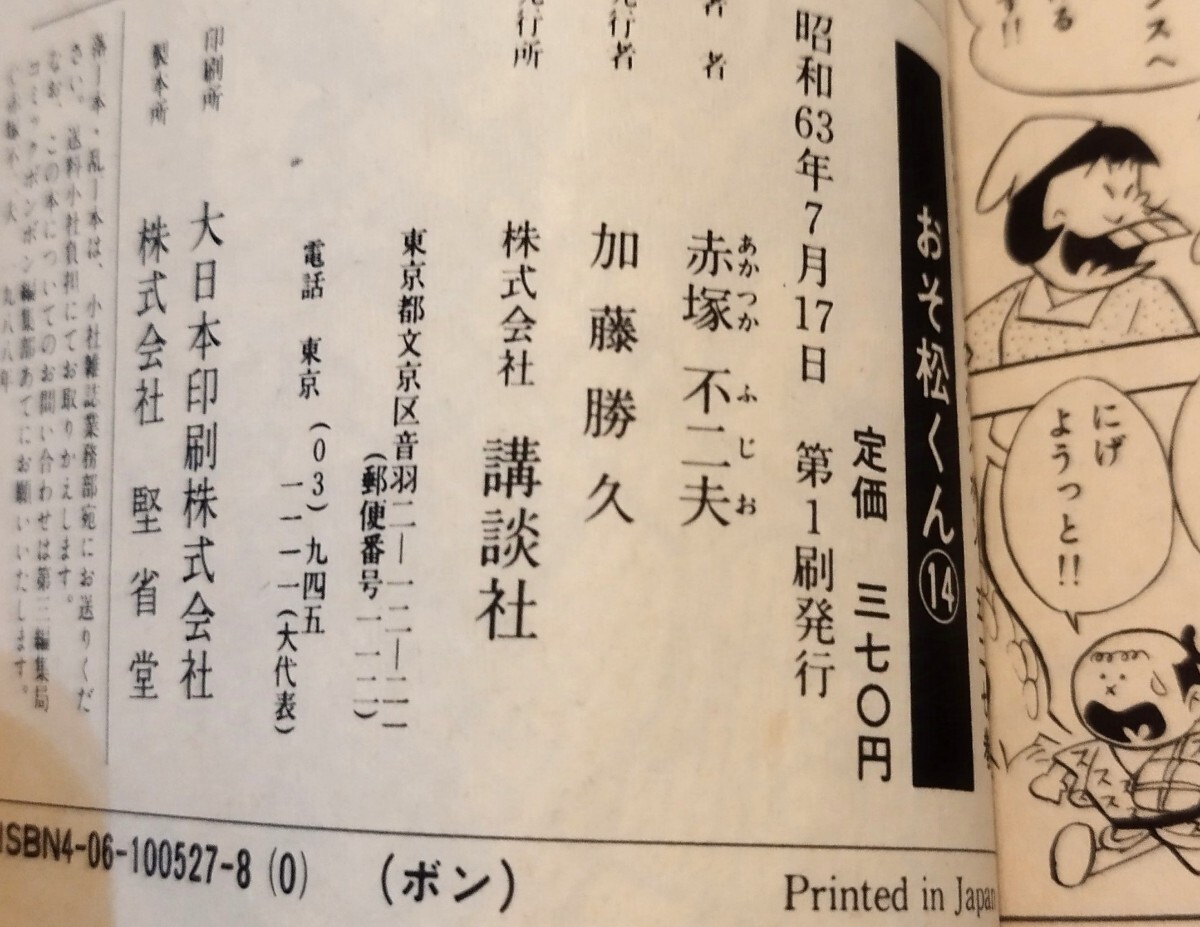 おそ松くん⑭
定価 三七〇円
昭和63年7月17日 第1刷発行
者 赤塚不二夫
あかつか ふじお
行者 加藤勝久
行所 株式会社 講談社
東京都文京区音羽二―一二―二一
(郵便番号一一二)
電話 東京(03)九四五
一一一一(大代表)
印刷所 大日本印刷株式会社
製本所 株式会社 堅省堂
落丁本・乱丁本は、小社雑誌業務部宛にお送りくだ
さい。送料小社負担にてお取りかえします。
なお、この本についてのお問い合わせは第三編集局
コミックボンボン編集部あてにお願いいたします。
ISBN4-06-100527-8 (0) (ボン)
Printed in Japan
ンスへ
る
す!!
にげ
ようっと!!